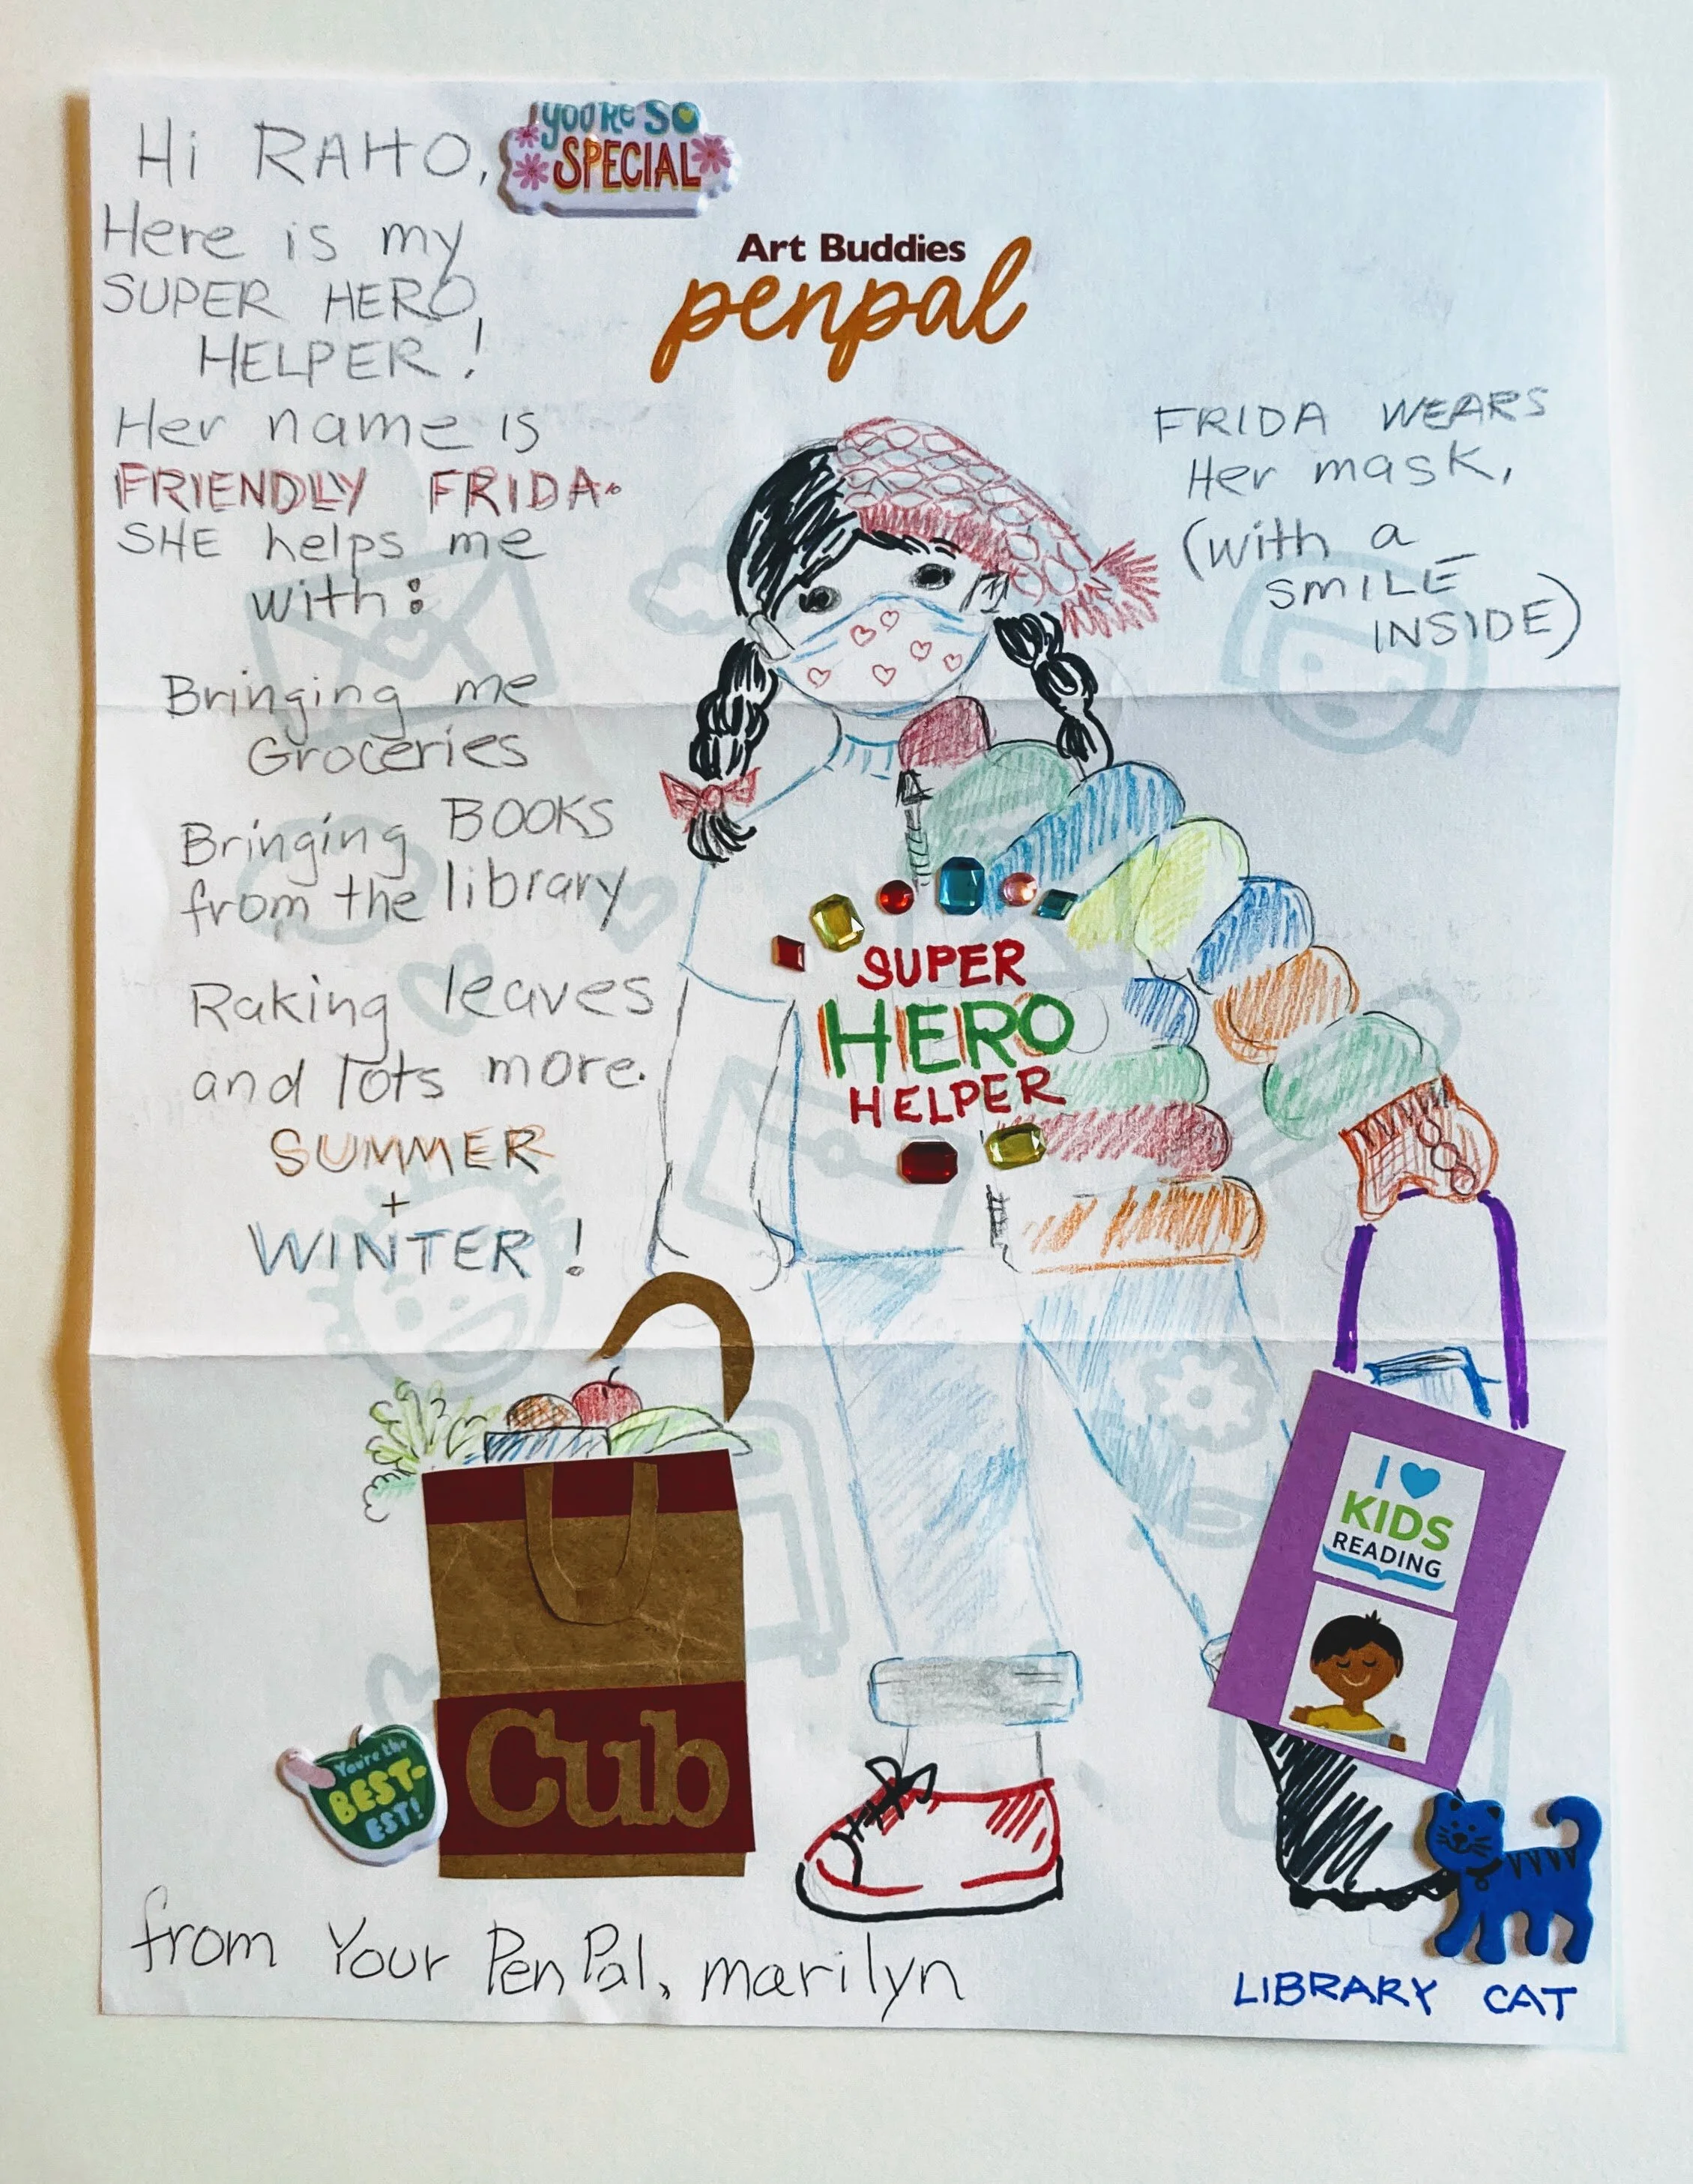 Hi RAHO,
YOU'RE SO
SPECIAL
Art Buddies
penpal
Here is my
SUPER HERO
HELPER!
Her name is
FRIENDLY FRIDA.
SHE helps me
with:
Bringing me
Groceries
Bringing BOOKS
from the library
Raking leaves
and lots more.
SUMMER
+
WINTER!
FRIDA WEARS
Her mask,
(with a
SMILE
INSIDE)
SUPER
HERO
HELPER
I
KIDS
READING
Cub
You're the
BEST-
EST!
from Your PenPal, marilyn
LIBRARY CAT